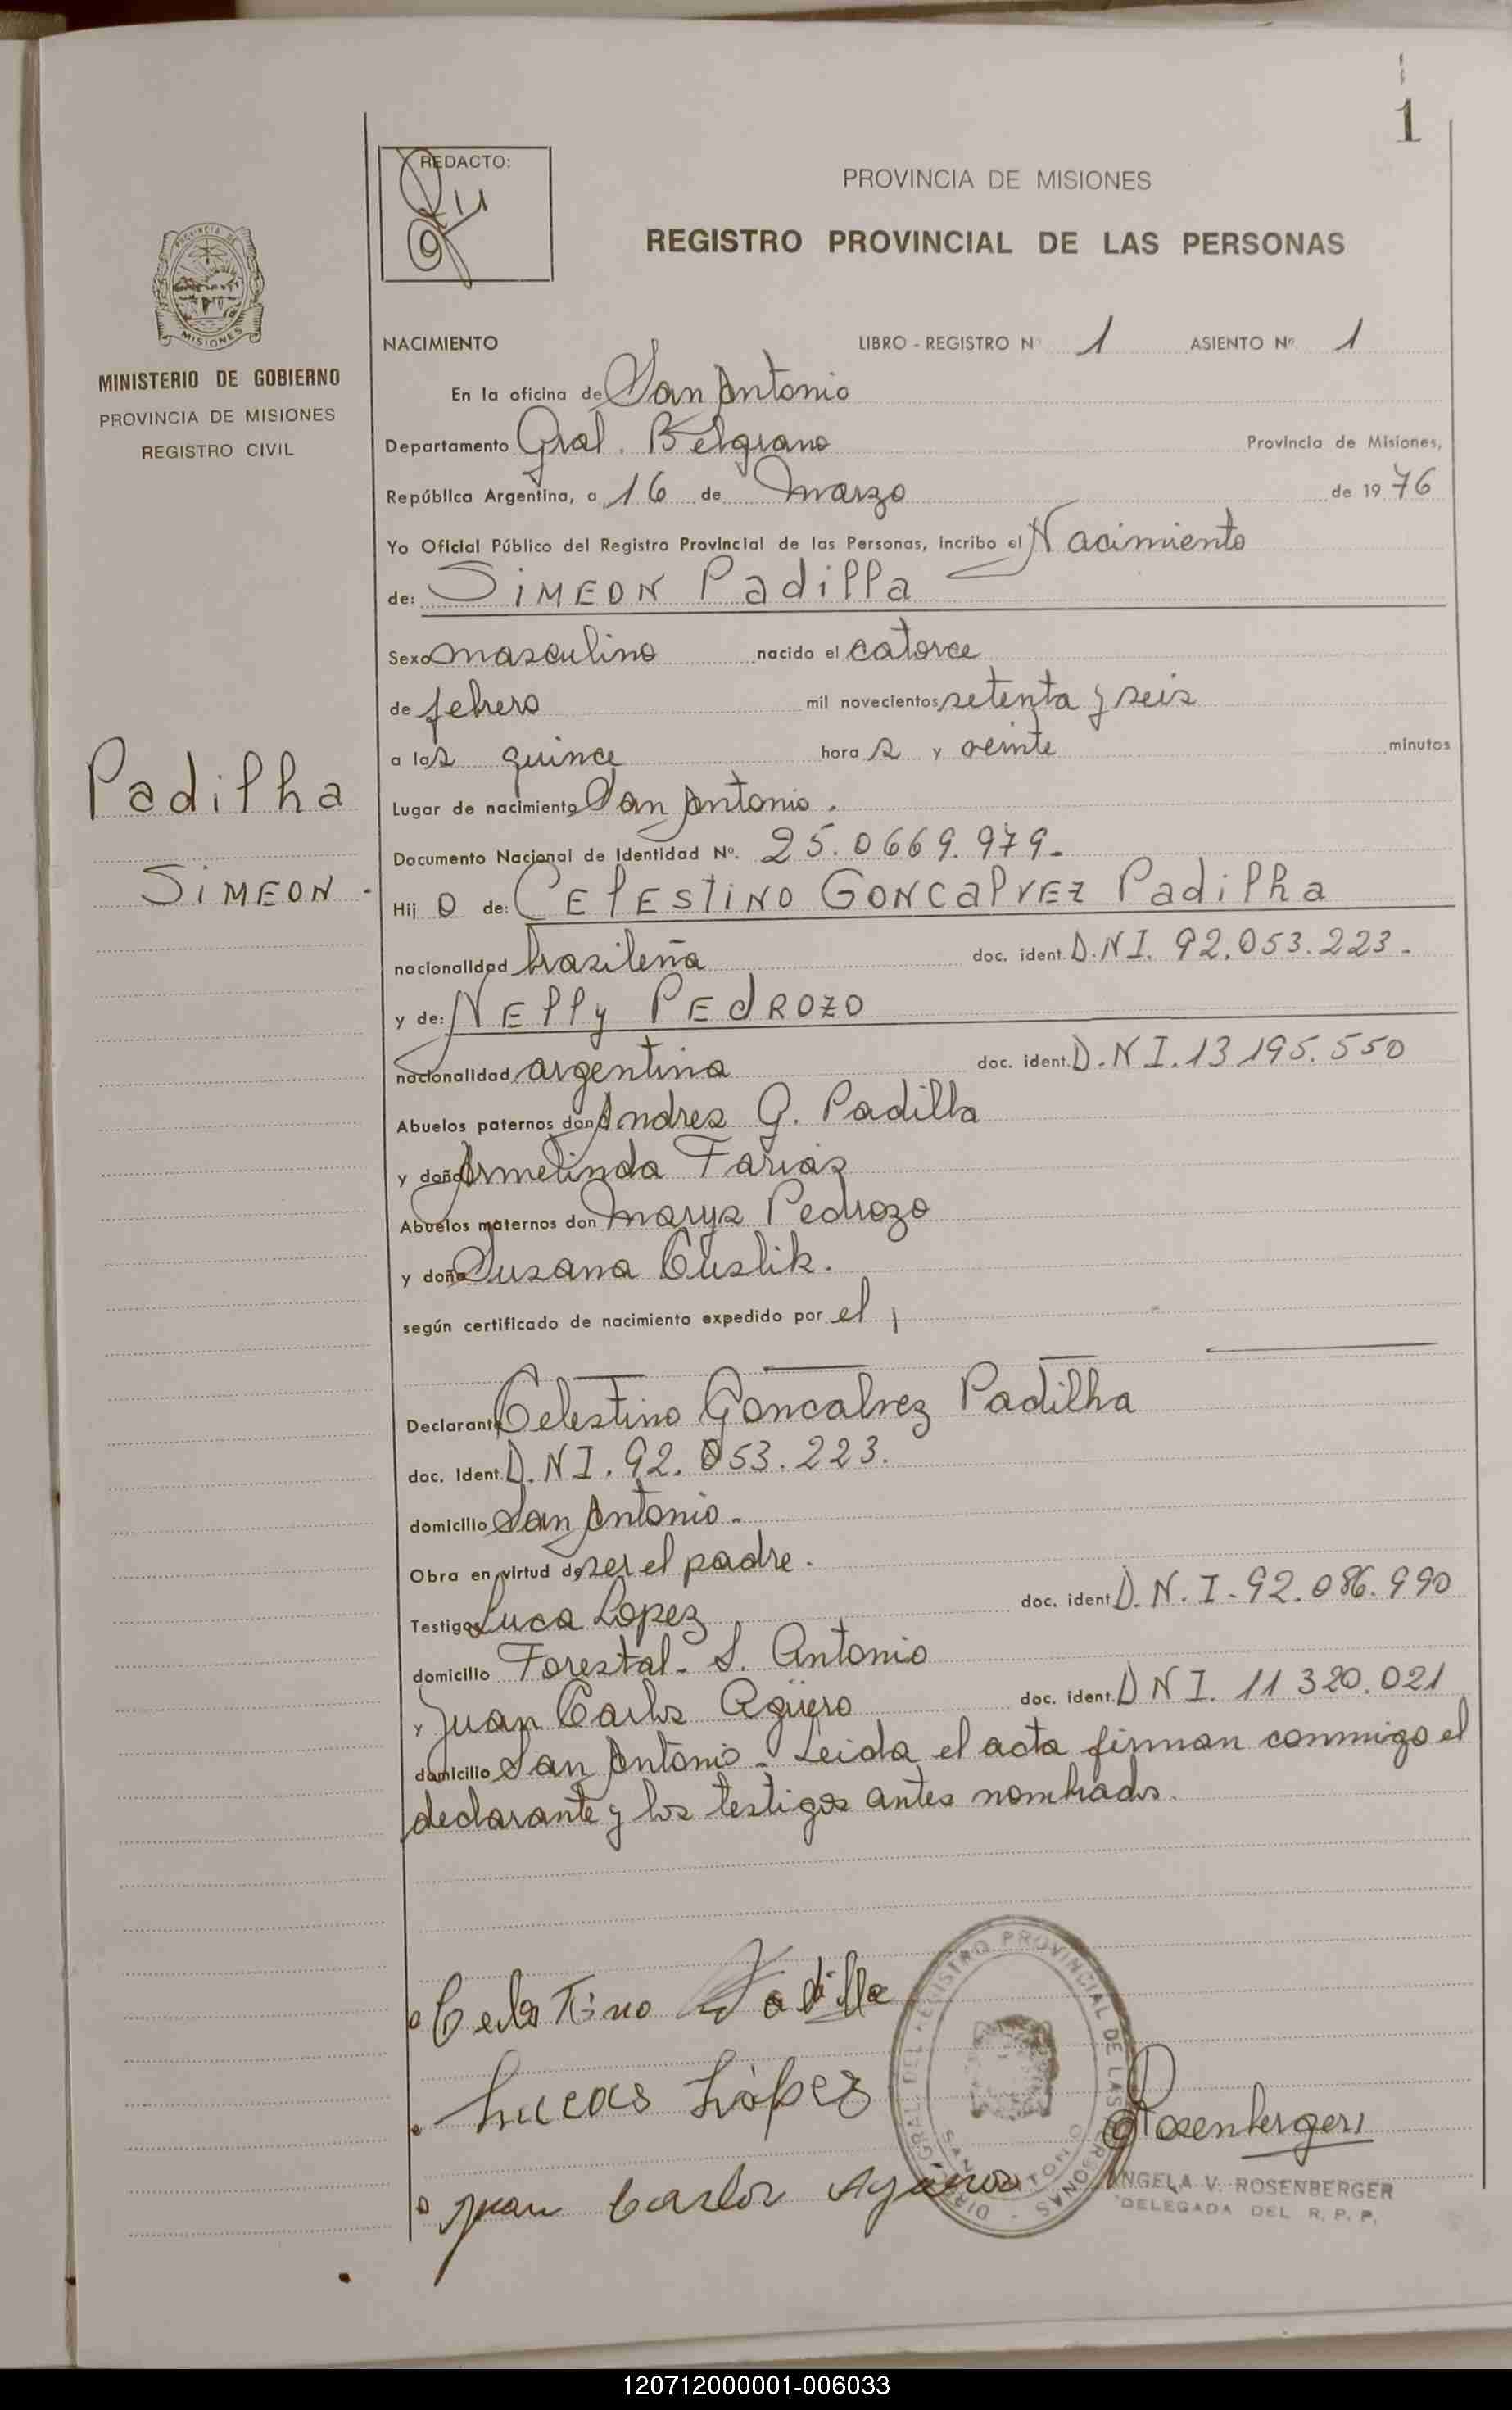 1
REDACTO:
PROVINCIA DE MISIONES
REGISTRO PROVINCIAL DE LAS PERSONAS
PROVINCIA DE
MISIONES
MINISTERIO DE GOBIERNO
PROVINCIA DE MISIONES
REGISTRO CIVIL
NACIMIENTO LIBRO - REGISTRO Nº 1 ASIENTO Nº 1
En la oficina de San Antonio
Departamento Gral. Belgrano Provincia de Misiones,
República Argentina, a 16 de marzo de 1976
Yo Oficial Público del Registro Provincial de las Personas, incribo el Nacimiento
de: SIMEON Padilla
Sexo masculino nacido el catorce
de febrero mil novecientos setenta y seis
a las quince horas y veinte minutos
Padilha
Lugar de nacimiento San Antonio.
Documento Nacional de Identidad Nº. 25.0669.979-
SIMEON -
Hijo de: CELESTINO GONCALVEZ Padilha
nacionalidad brasileña doc. ident. D.N.I. 92.053.223-
y de: NELLY PEDROZO
nacionalidad argentina doc. ident. D.N.I. 13195.550
Abuelos paternos don Andres G. Padilla
y doña Armelinda Farias
Abuelos maternos don marys Pedrozo
y doña Susana Cuslik.
según certificado de nacimiento expedido por el
Declarante Celestino Goncalvez Padilha
doc. Ident. D.N.I. 92.053.223.
domicilio San Antonio-
Obra en virtud de ser el padre.
Testigos Luca Lopez doc. ident D.N.I-92.086.990
domicilio Forestal- S. Antonio
y Juan Carlos Agüero doc. ident. DNI. 11 320.021
domicilio San Antonio- Leida el acta firman conmigo el
declarante y los testigos antes nombrados.
Celestino Padilla
Lucas López
Juan Carlos Agüero
DIRC. GRAL. DEL REGISTRO PROVINCIAL DE LAS PERSONAS -
SAN ANTONIO
Rosenberger
ANGELA V. ROSENBERGER
DELEGADA DEL R. P. P.
120712000001-006033